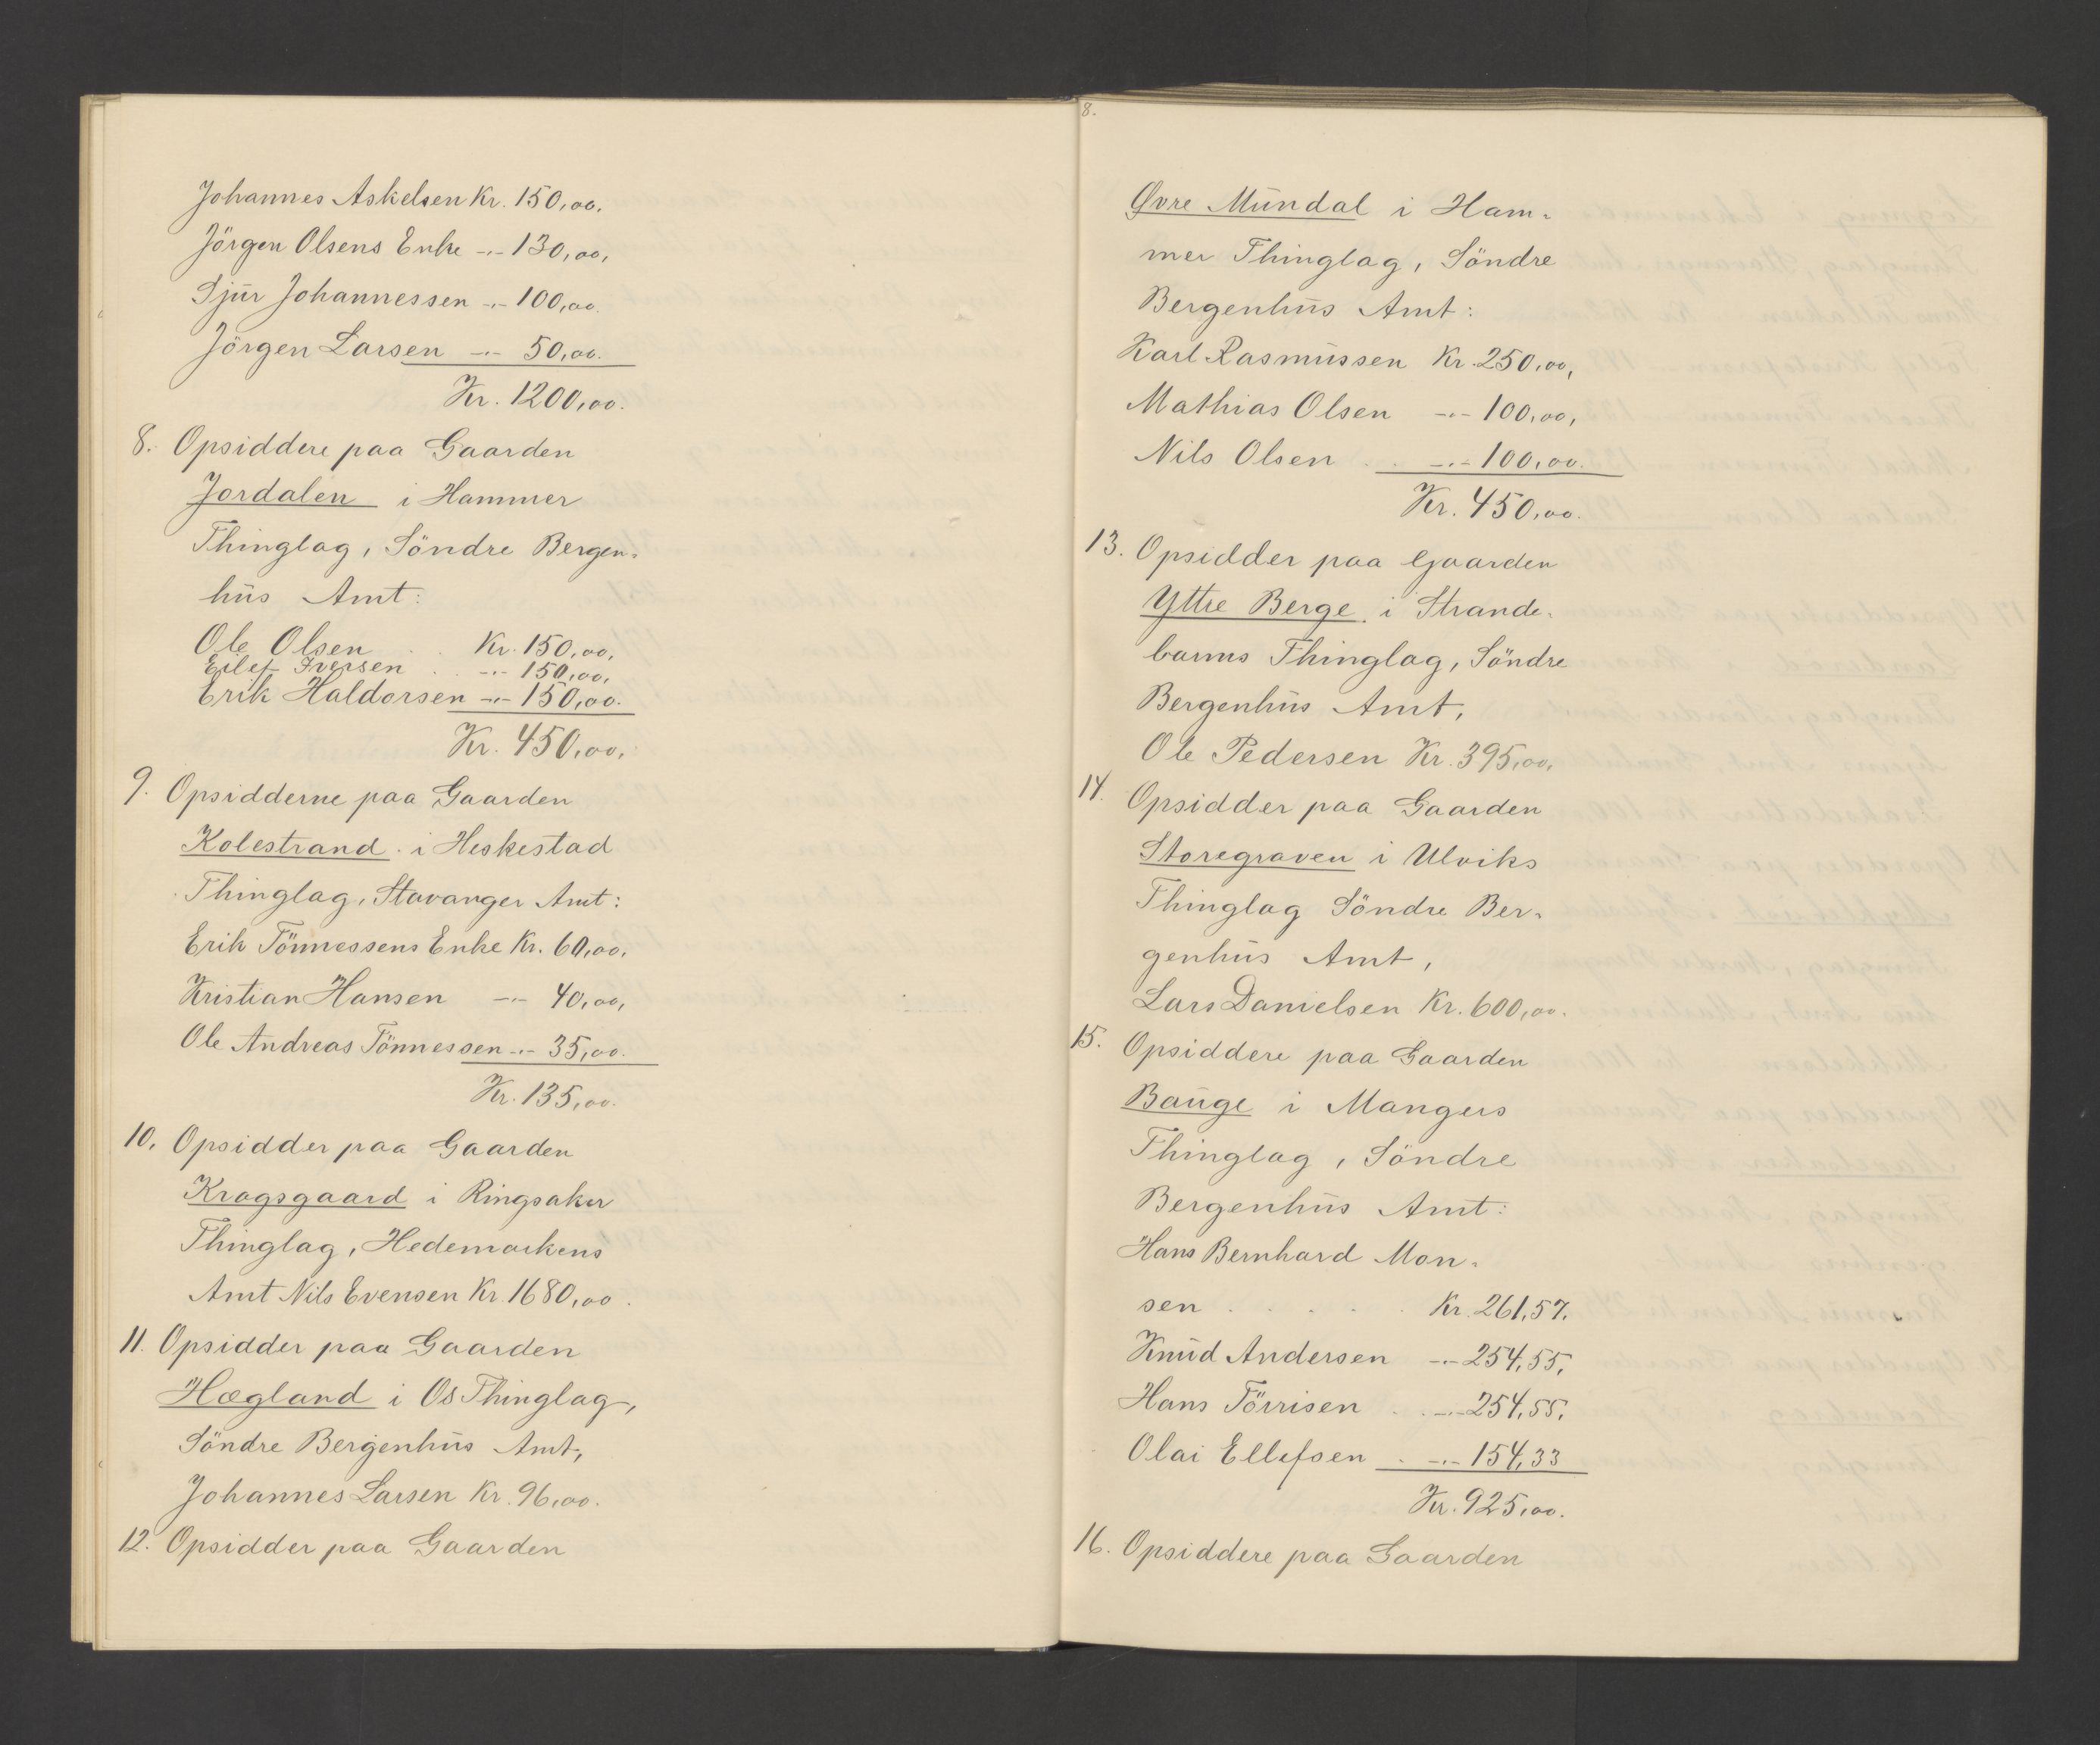 Johannes Askelsen Kr. 150,00.
Jörgen Olsens Enke -"- 130,00,
Sjur Johannessen -"- 100,00.
Jörgen Larsen -"- 50,00.
Kr. 1200,00.
8. Opsiddere paa Gaarden
Jordalen i Hammer
Thinglag, Söndre Bergen-
hus Amt:
Ole Olsen . . Kr. 150,00,
Eilef Iversen . . -"- 150,00,
Erik Haldorsen -"- 150,00.
Kr. 450,00,
9. Opsidderne paa Gaarden
Kolestrand i Heskestad
Thinglag, Stavanger Amt:
Erik Tönnessens Enke Kr. 60,00,
Kristian Hansen -"- 40,00,
Ole Andreas Tönnessen -"- 35,00.
Kr. 135,00.
10. Opsidder paa Gaarden
Kragsgaard i Ringsaker
Thinglag, Hedemarkens
Amt Nils Evensen Kr. 1680,00.
11. Opsidder paa Gaarden
Hægland i Os Thinglag,
Söndre Bergenhus Amt,
Johannes Larsen Kr. 96,00.
12. Opsidder paa Gaarden
8.
Øvre Mundal i Ham-
mer Thinglag, Söndre
Bergenhus Amt:
Karl Rasmussen Kr. 250,00,
Mathias Olsen -"- 100,00,
Nils Olsen . -"- 100,00.
Kr. 450,00.
13. Opsidder paa Gaarden
Yttre Berge i Strande-
barms Thinglag, Söndre
Bergenhus Amt,
Ole Pedersen Kr. 395,00,
14. Opsidder paa Gaarden
Storegraven i Ulviks
Thinglag Söndre Ber-
genhus Amt,
Lars Danielsen Kr. 600,00.
15. Opsiddere paa Gaarden
Bauge i Mangers
Thinglag, Söndre
Bergenhus Amt:
Hans Bernhard Mon-
sen . . . . . Kr. 261,57.
Knud Andersen -"- 254,55,
Hans Törrisen . . -"- 254,55,
Olai Ellefsen . -"- 154,33
Kr. 925,00.
16. Opsiddere paa Gaarden